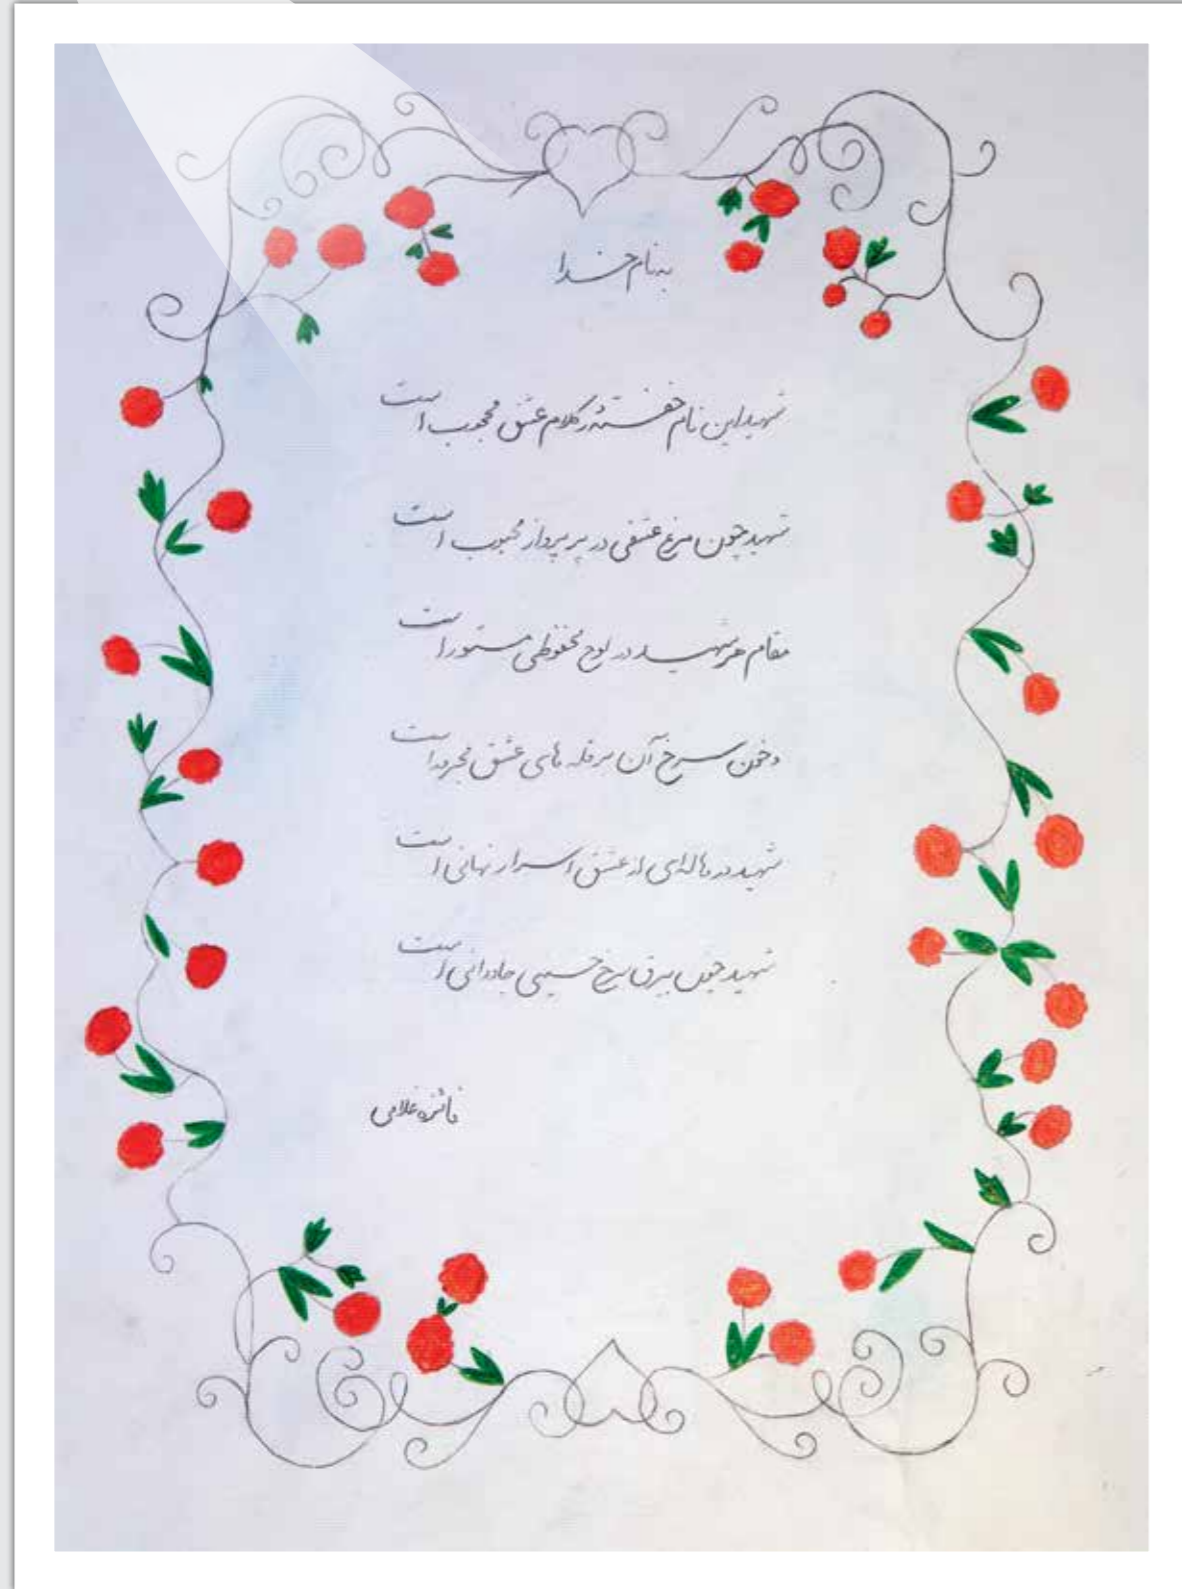 به نام خدا
شهید این نام خفته در کلام عشق محجوب است
شهید چون مرغ عشقی در پر پرواز محبوب است
مقام هر شهید در لوح محفوظی مستور است
و خون سرخ آن بر قله های عشق
شهید در هاله‌ای از عشق اسرار نهانی است
شهید چون بیرق سرخ حسینی جاودانی است
فائزه غلامی